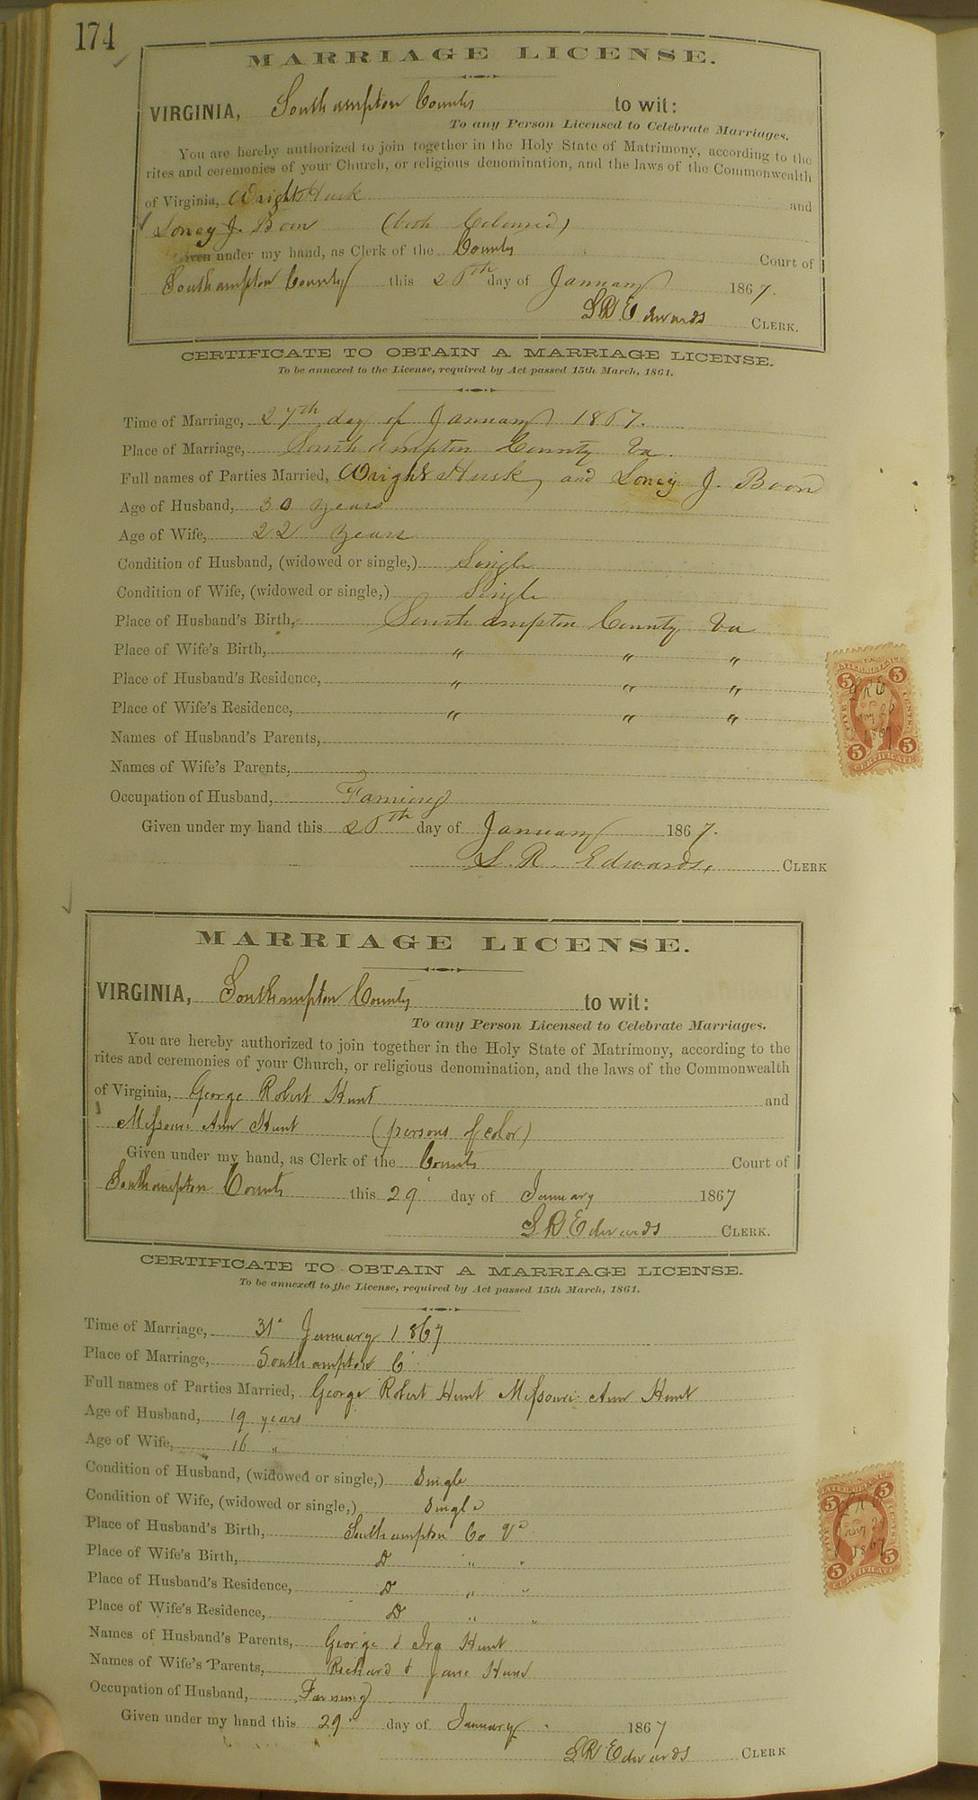 174
MARRIAGE LICENSE.
VIRGINIA, Southampton County to wit:
To any Person Licensed to Celebrate Marriages.
You are hereby authorized to join together in the Holy State of Matrimony, according to the
rites and ceremonies of your Church, or religious denomination, and the laws of the Commonwealth
of Virginia, Wright Husk and
Loney J. Boon (both Coloured)
Given under my hand, as Clerk of the County Court of
Southampton County this 26th day of January 1867.
L R Edwards CLERK.
CERTIFICATE TO OBTAIN A MARRIAGE LICENSE.
To be annexed to the License, required by Act passed 15th March, 1861.
Time of Marriage, 27th day of January 1867.
Place of Marriage, Southampton County Va.
Full names of Parties Married, Wright Husk, and Loney J. Boon
Age of Husband, 30 years
Age of Wife, 22 years
Condition of Husband, (widowed or single,) Single
Condition of Wife, (widowed or single,) Single
Place of Husband's Birth, Southampton County Va
Place of Wife's Birth, " " "
Place of Husband's Residence, " " "
Place of Wife's Residence, " " "
Names of Husband's Parents,
Names of Wife's Parents,
Occupation of Husband, Farming
Given under my hand this 26th day of January 1867.
L. R. Edwards, CLERK
MARRIAGE LICENSE.
VIRGINIA, Southampton County to wit:
To any Person Licensed to Celebrate Marriages.
You are hereby authorized to join together in the Holy State of Matrimony, according to the
rites and ceremonies of your Church, or religious denomination, and the laws of the Commonwealth
of Virginia, George Robert Hunt and
Missouri Ann Hunt (persons of color)
Given under my hand, as Clerk of the County Court of
Southampton County this 29 day of January 1867
L R Edwards CLERK.
CERTIFICATE TO OBTAIN A MARRIAGE LICENSE.
To be annexed to the License, required by Act passed 15th March, 1861.
Time of Marriage, 31st January 1867
Place of Marriage, Southampton Co
Full names of Parties Married, George Robert Hunt Missouri Ann Hunt
Age of Husband, 19 years
Age of Wife, 16 "
Condition of Husband, (widowed or single,) Single
Condition of Wife, (widowed or single,) Single
Place of Husband's Birth, Southampton Co Va
Place of Wife's Birth, Do " "
Place of Husband's Residence, Do " "
Place of Wife's Residence, Do " "
Names of Husband's Parents, George & Hunt
Names of Wife's Parents, Richard & Jane Hunt
Occupation of Husband, Farming
Given under my hand this 29 day of January 1867
L R Edwards CLERK